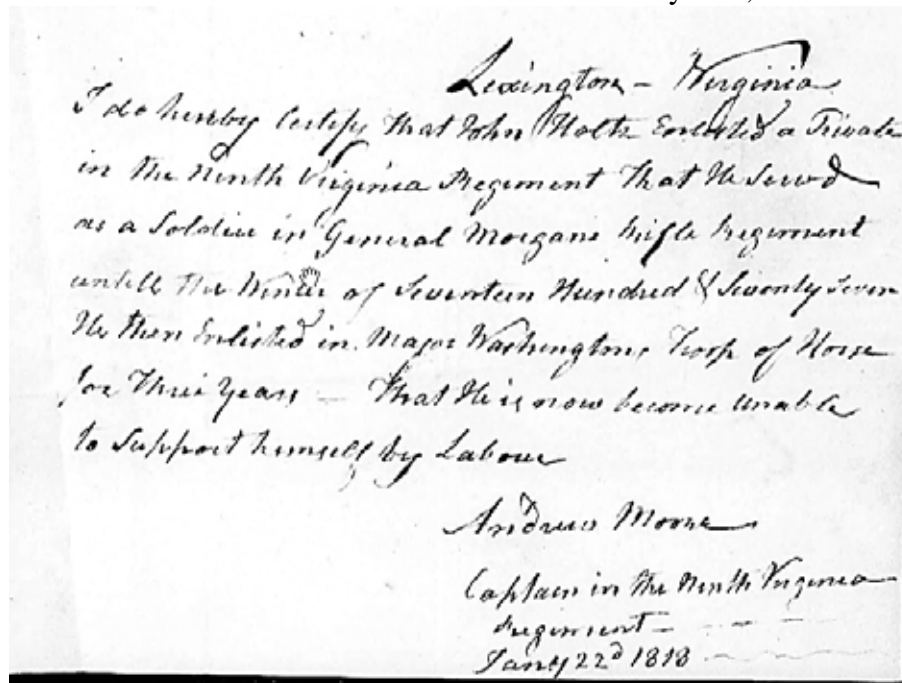 Lexington – Virginia
I do hereby Certify that John Holtz Enlisted a Private
in the Ninth Virginia Regiment that He Serv'd
as a Soldier in General Morgans Rifle Regiment
untill the Winter of Seventeen Hundred & Seventy Seven
He then Enlisted in Major Washingtons Troop of Horse
for Three Years – That He is now become unable
to Support himself by Labour
Andrew Moore
Captain in the Ninth Virginia
Regiment –
Jany 22d 1818